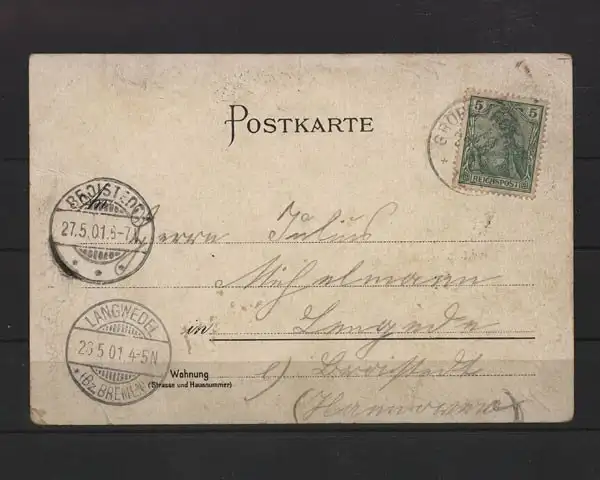 POSTKARTE
5 5
REICHSPOST
* GRO
BROISTEDT
27.5.01.6-7N
An
Herrn Julius
Mühelmann
LANGWEDEL
26.5.01 4-5N
* (Bz. BREMEN)
in Lengede
Wohnung
(Strasse und Hausnummer)
b/ Broistedt
(Hannover)